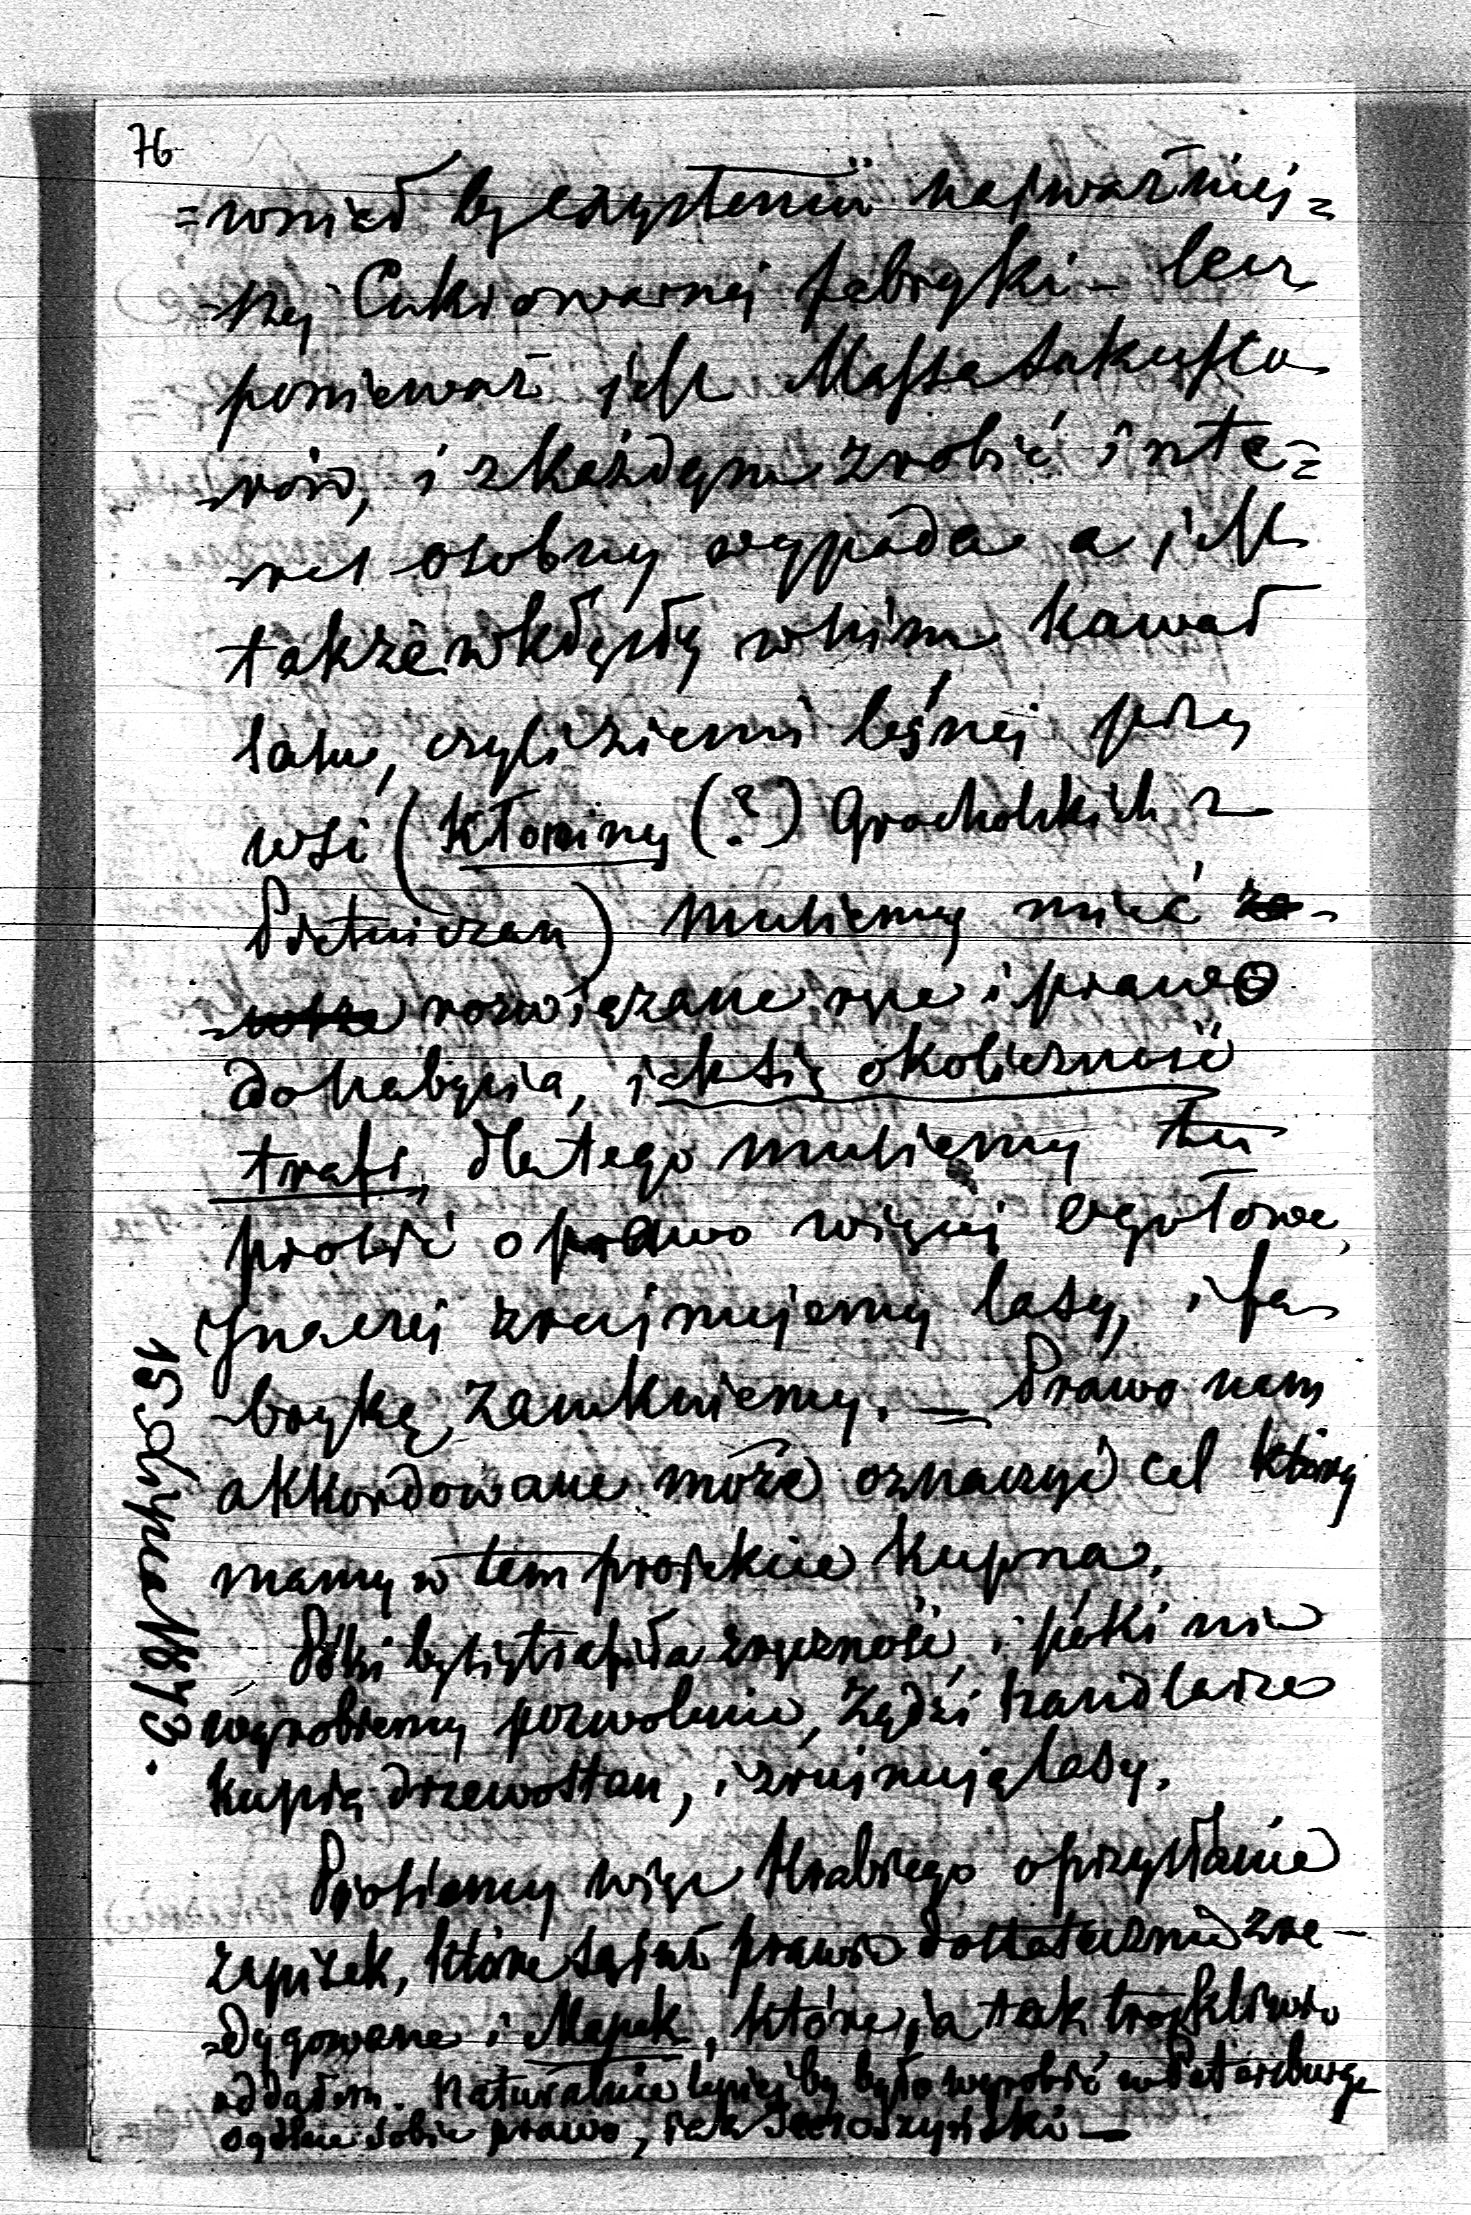 76
=wnież by egzystencii najważniej=
-szej Cukrowarnej fabryki – lecz
ponieważ jest Massa
-rów, i z każdym zrobić inte=
-res osobny wypada a jest
także w kłętej w nim kawał
lasu, czyli ziemi leśnej przy
wsi (Kłoniny (?) Grocholskich z
Pietniczan) Musiemy mieć
rozwiązane ręce i prawo
do nabycia, jak się okoliczność
trafi, dlatego musiemy tu
prosić o prawo więcej ogółowe,
Inaczej zrujnujemy lasy, i fa
-brykę zamkniemy. — Prawo nam
akkordowane może oznaczyć cel który
mamy w tem projekcie kupna.
Póki by się trafiła zręczność, i póki nie
wyrobiemy pozwolenie, Żydzi handlarze
kupią drzewostan, i zrujnują lasy.
Prosiemy więc Hrabiego o przysłanie
zapisek, które są już prawie dostatecznie zre-
-dygowane i Mapek, które ja tak troskliwie
oddałem. Naturalnie lepiej by było wyrobić w Petersburgu
ogólne sobie prawo, jak Jaroszyński —
15 Stycznia 1873.